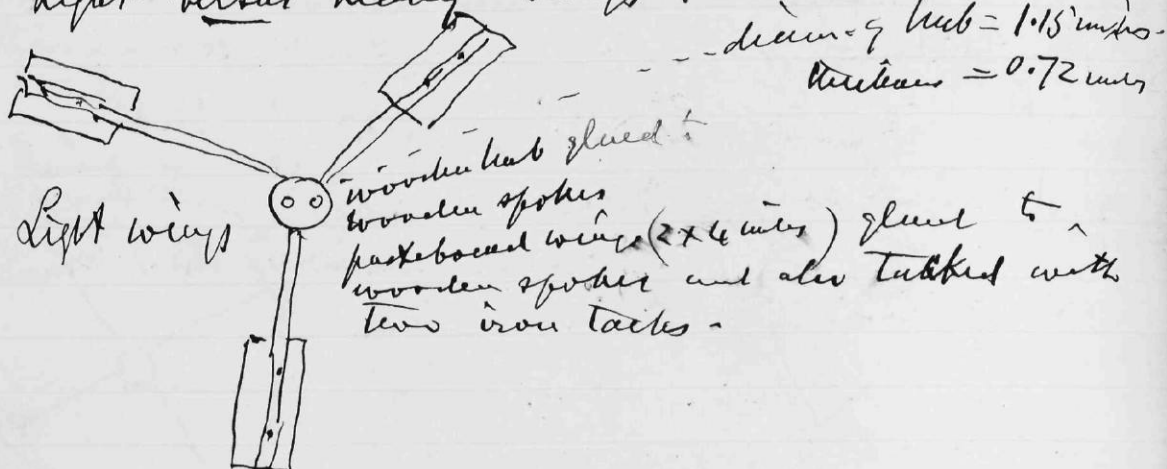 Light versus heavy wings.
diam. of hub = 1.15 inches.
thickness = 0.72 inches
wooden hub glued to
wooden spokes
pasteboard wings (2 x 4 inches) glued to
wooden spokes and also tacked with
two iron tacks.
Light wings